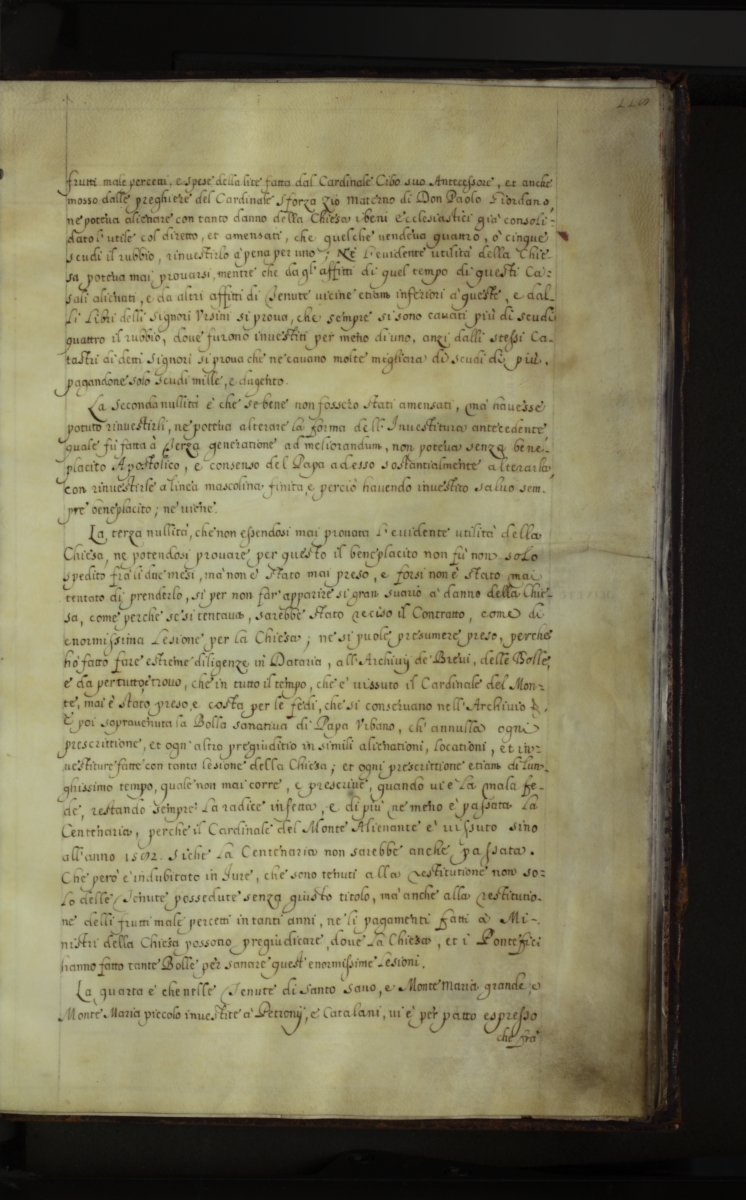 frutti male percetti, e spese della lite fatta dal Cardinale Cibo suo Antecessore, et anche
mosso dalle preghiere del Cardinale Sforza zio materno di Don Paolo Giordano
ne poteva alienare con tanto danno della Chiesa i beni Ecclesiastici già consoli-
dato l'utile col diretto, et amensati, che quelche vendeva quattro, ò cinque
scudi il rubbio, rinvestirlo à pena per uno; Nè l'evidente utilità della Chie-
sa poteva mai provarsi, mentre che da gl'affitti di quel tempo di questi Ca-
sali alienati, e da altri affitti di Tenute vicine etiam inferiori à queste, e dal-
li Libri delli Signori Ursini si prova, che sempre si sono cavati più di scudi
quattro il rubbio, dove furono investiti per meno di uno, anzi dalli stessi Ca-
tastri di detti Signori si prova che ne cavano molte migliara di scudi di più,
pagandone solo scudi mille, e dugento.
La seconda nullità è che se bene non fossero stati amensati, mà havesse
potuto rinvestirli, ne poteva alterare la forma dell'Investitura antecedente
quale fù fatta à Terza generatione ad meliorandum, non poteva senza bene-
placito Apostolico, e consenso del Papa adesso sostantialmente alterarla
con rinvestirle a linea mascolina finita, e perciò havendo investito salvo sem-
pre beneplacito; ne viene.
La terza nullità, che non essendosi mai provata l'evidente utilità della
Chiesa, ne potendosi provare per questo il beneplacito non fù non solo
spedito frà li due mesi, mà non è stato mai preso, e forsi non è stato mai
tentato di prenderlo, si per non far apparire si gran suario à danno della Chie-
sa, come perche se si tentava, sarebbe stato reciso il Contratto, come di
enormissima Lesione per la Chiesa; ne si puole presumere preso, perche
hò fatto fare estreme diligenze in Dataria, all'Archivij de Brevi, delle Bolle,
e da per tutto, e trovo, che in tutto il tempo, che è vissuto il Cardinale del Mon-
te, mai è stato preso, e costa per le fedi, che si conservano nell'Archivio
È poi sopravenuta la Bolla sanativa di Papa Urbano, ch'annulla ogni
prescrittione, et ogn'altro pregiuditio in simili alienationi, locationi, et in-
vestiture fatte con tanta lesione della Chiesa; et ogni prescrittione etiam di lun-
ghissimo tempo, quale non mai corre, e prescrive, quando vi è la mala fe-
de, restando sempre la radice infetta, e di più ne meno è passata la
Centenaria, perche il Cardinale del Monte Alienante è vissuto sino
all'anno 1592. Siche la Centenaria non sarebbe anche passata.
Che però è indubitato in Jure, che sono tenuti alla restitutione non so-
lo delle Tenute possedute senza giusto titolo, mà anche alla restitutio-
ne delli frutti male percetti in tanti anni, ne li pagamenti fatti à Mi-
nistri della Chiesa possono pregiudicare, dove la Chiesa, et i Pontefici
hanno fatto tante Bolle per sanare quest'enormissime Lesioni.
La quarta è che nelle Tenute di Santo Sano, e Monte Maria grande e
Monte Maria piccolo investite à Petronij, e Catalani, vi è per patto espresso
che